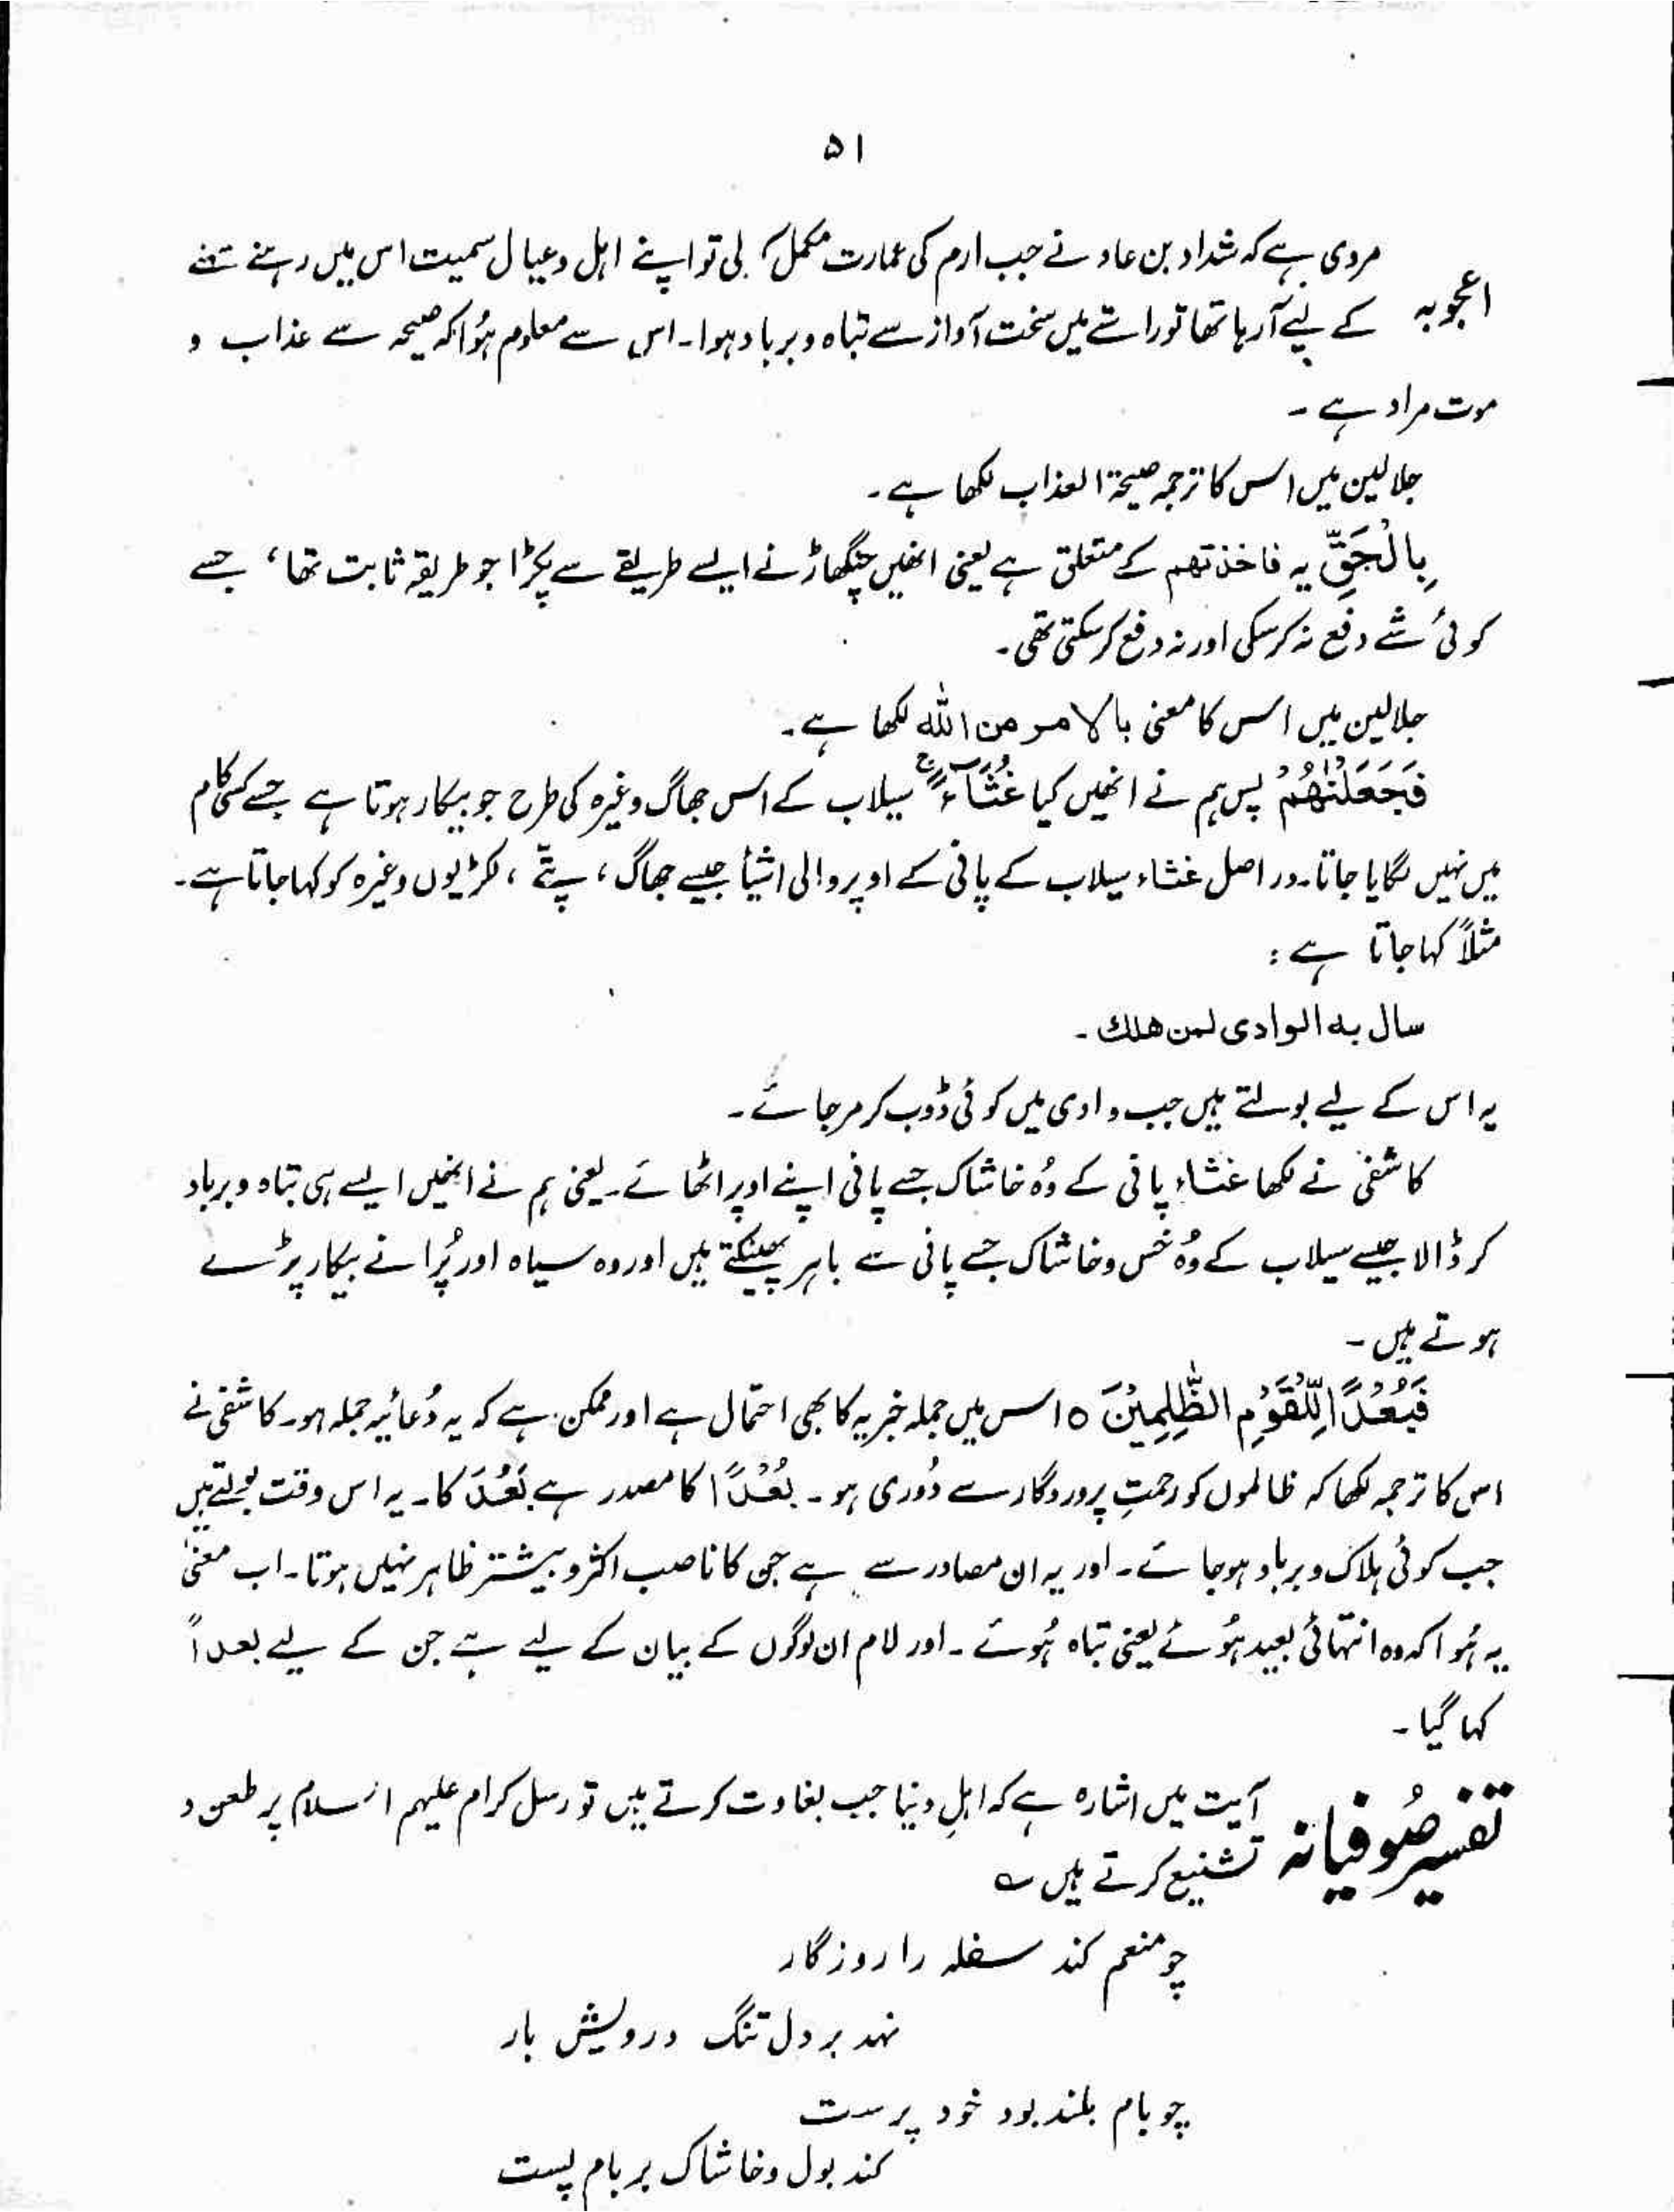 ۵۱
مروی ہے کہ شداد بن عاد نے جب ارم کی عمارت مکمل کر لی تو اپنے اہل و عیال سمیت اس میں رہنے سہنے
اعجوبہ
کے لیے آرہا تھا تو راستے میں سخت آواز سے تباہ و برباد ہوا۔ اس سے معلوم ہُوا کہ صیحہ سے عذاب و
موت مراد ہے۔
جلالین میں اس کا ترجمہ صیحۃ العذاب لکھا ہے۔
بِالْحَقِّ یہ فاخذتھم کے متعلق ہے یعنی انھیں چنگھاڑ نے ایسے طریقے سے پکڑا جو طریقہ ثابت تھا، جسے
کوئی شے دفع نہ کرسکی اور نہ دفع کرسکتی تھی۔
جلالین میں اس کا معنی بالامر من اللہ لکھا ہے۔
فَجَعَلْنٰھُمْ پس ہم نے انھیں کیا غُثَآءً ج سیلاب کے اس جھاگ وغیرہ کی طرح جو بیکار ہوتا ہے جسے کسی کام
میں نہیں لگایا جاتا۔ دراصل غثاء سیلاب کے پانی کے اوپر والی اشیأ جیسے جھاگ، پتّے، لکڑیوں وغیرہ کو کہا جاتا ہے۔
مثلاً کہا جاتا ہے :
سال بہ الوادی لمن ھلك۔
یہ اس کے لیے بولتے ہیں جب وادی میں کوئی ڈوب کر مر جائے۔
کاشفی نے لکھا غثاء پانی کے وُہ خاشاک جسے پانی اپنے اوپر اٹھائے۔ یعنی ہم نے انھیں ایسے ہی تباہ و برباد
کر ڈالا جیسے سیلاب کے وُہ خس و خاشاک جسے پانی سے باہر پھینکتے ہیں اور وہ سیاہ اور پُرانے بیکار پڑے
ہوتے ہیں۔
فَبُعْدًا لِّلْقَوْمِ الظّٰلِمِیْنَ ○ اس میں جملہ خبریہ کا بھی احتمال ہے اور ممکن ہے کہ یہ دُعائیہ جملہ ہو۔ کاشفی نے
اس کا ترجمہ لکھا کہ ظالموں کو رحمتِ پروردگار سے دُوری ہو۔ بُعْدًا کا مصدر ہے بَعُدَ کا۔ یہ اس وقت بولتے ہیں
جب کوئی ہلاک و برباد ہو جائے۔ اور یہ ان مصادر سے ہے جن کا ناصب اکثر و بیشتر ظاہر نہیں ہوتا۔ اب معنیٰ
یہ ہُوا کہ وہ انتہائی بعید ہُوئے یعنی تباہ ہُوئے۔ اور لام ان لوگوں کے بیان کے لیے ہے جن کے لیے بعداً
کہا گیا۔
آیت میں اشارہ ہے کہ اہلِ دنیا جب بغاوت کرتے ہیں تو رسل کرام علیہم السلام پر طعن و
تفسیر صُوفیانہ
تشنیع کرتے ہیں ؎
چو منعم کند سفلہ را روزگار
نہد بر دل تنگ درویش بار
چو بام بلند بود خود پرست
کند بول و خاشاک بر بام پست